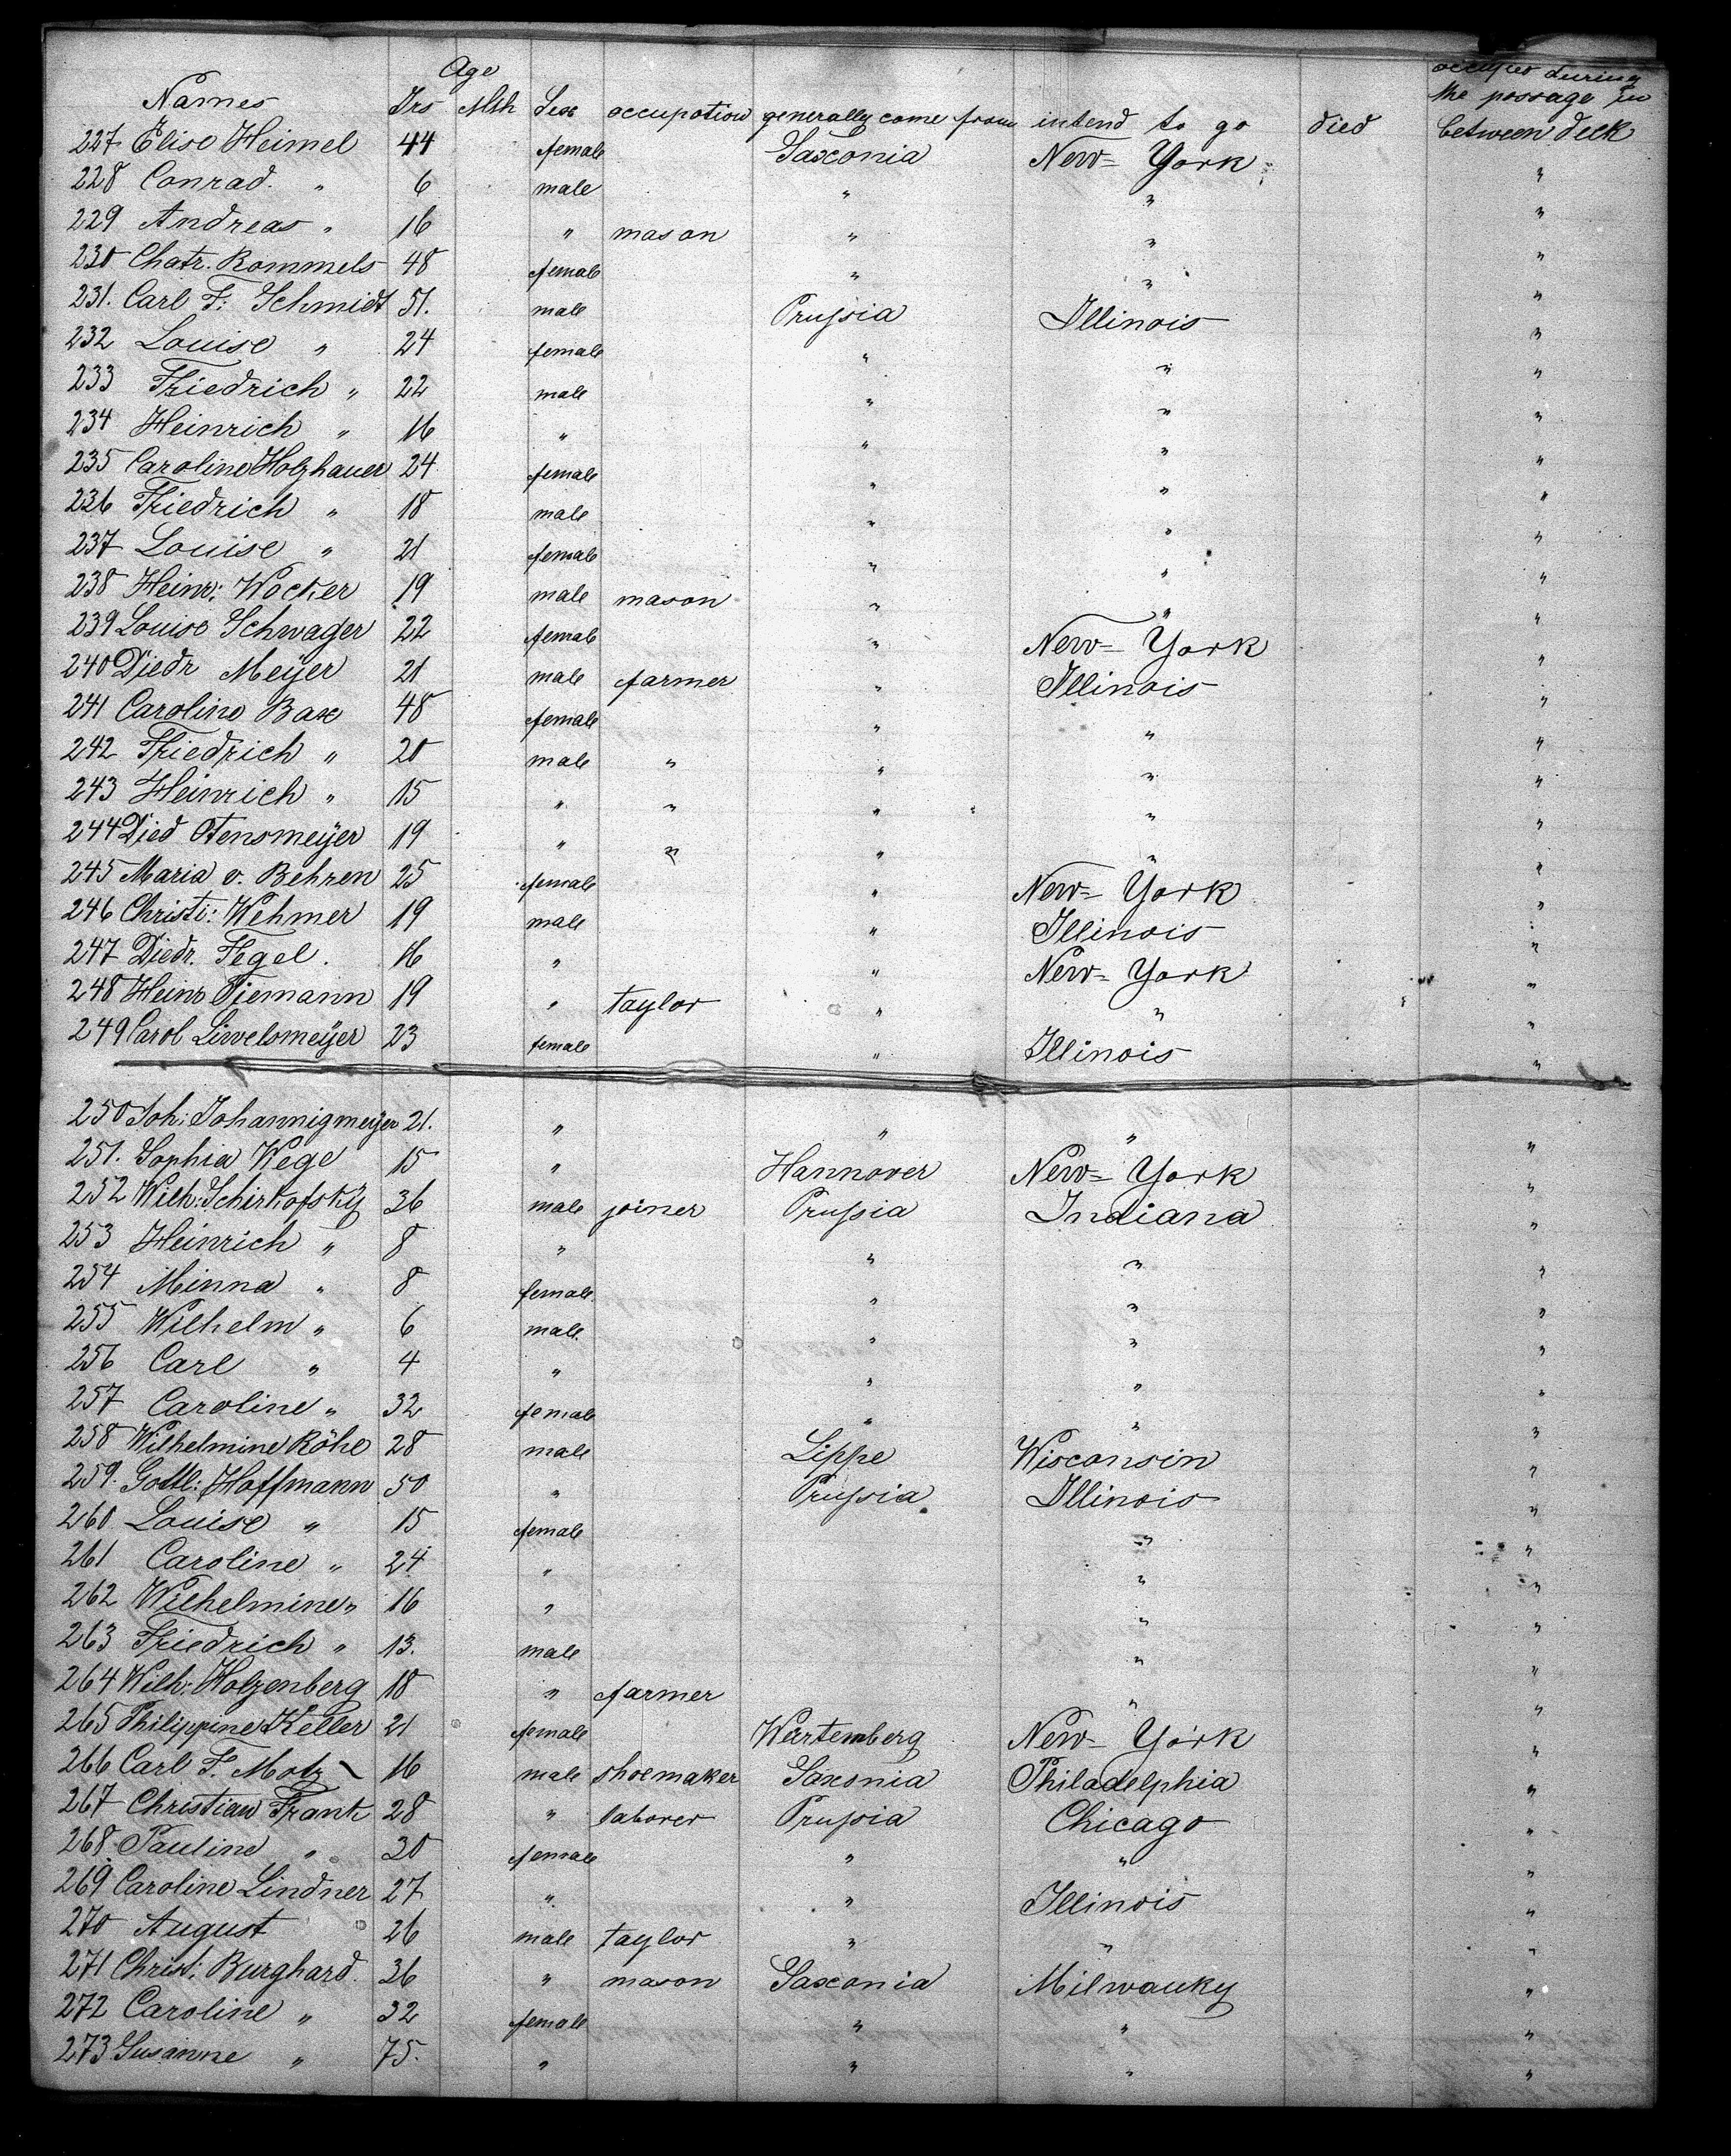 Age occupied during
Names Yrs Mth Sex occupation generally come from intend to go died the passage in
between deck
227 Elise Heimel 44 female Saxconia New= York "
228 Conrad. " 6 male " " "
229 Andreas " 16 " mason " " "
230 Chatr. Rommels 48 female " " "
231. Carl F: Schmidt 51. male Prussia Illinois "
232 Louise " 24 female " " "
233 Friedrich " 22 male " " "
234 Heinrich " 16 " " " "
235 Caroline Holzhauer 24 female " " "
236 Friedrich " 18 male " " "
237 Louise " 21 female " " "
238 Heinr: Wocker 19 male mason " " "
239 Louise Schwager 22 female " New= York "
240 Diedr Meÿer 21 male farmer " Illinois "
241 Caroline Bax 48 female " " "
242 Friedrich " 20 male " " " "
243 Heinrich " 15 " " " " "
244 Died Otensmeÿer 19 " " " " "
245 Maria v. Behren 25 female " New= York "
246 Christi: Wehmer 19 male " Illinois "
247 Diedr. Flegel. 16 " " New= York "
248 Heinr Tiemann 19 " taylor " " "
249 Carol Liwelsmeÿer 23 female " Illinois "
250 Joh: Johannigmeyer 21. " " " "
251. Sophia Wege 15 " Hannover New= York "
252 Wilh: Schirkofskÿ 36 male joiner Prussia Indiana "
253 Heinrich " 8 " " " "
254 Minna " 8 female. " " "
255 Wilhelm " 6 male. " " "
256 Carl " 4 " " " "
257 Caroline " 32 female " " "
258 Wilhelmine Röhe 28 male Lippe Wisconsin "
259. Gottl: Hoffmann 50 " Prussia Illinois "
260 Louise " 15 female " "
261 Caroline " 24 " " "
262 Wilhelmine " 16 " " "
263 Friedrich " 13. male " "
264 Wilh: Holzenberg 18 " farmer " "
265 Philippine Keller 21 female Würtemberg New= York "
266 Carl F. Motz 16 male shoemaker Saxonia Philadelphia "
267 Christian Frank 28 " laborer Prussia Chicago "
268. Pauline " 30 female " " "
269 Caroline Lindner 27 " " Illinois "
270 August 26 male taylor " " "
271 Christ: Burghard. 36 " mason Saxconia Milwauky "
272 Caroline " 32 female " " "
273 Susanne " 75. " " " "